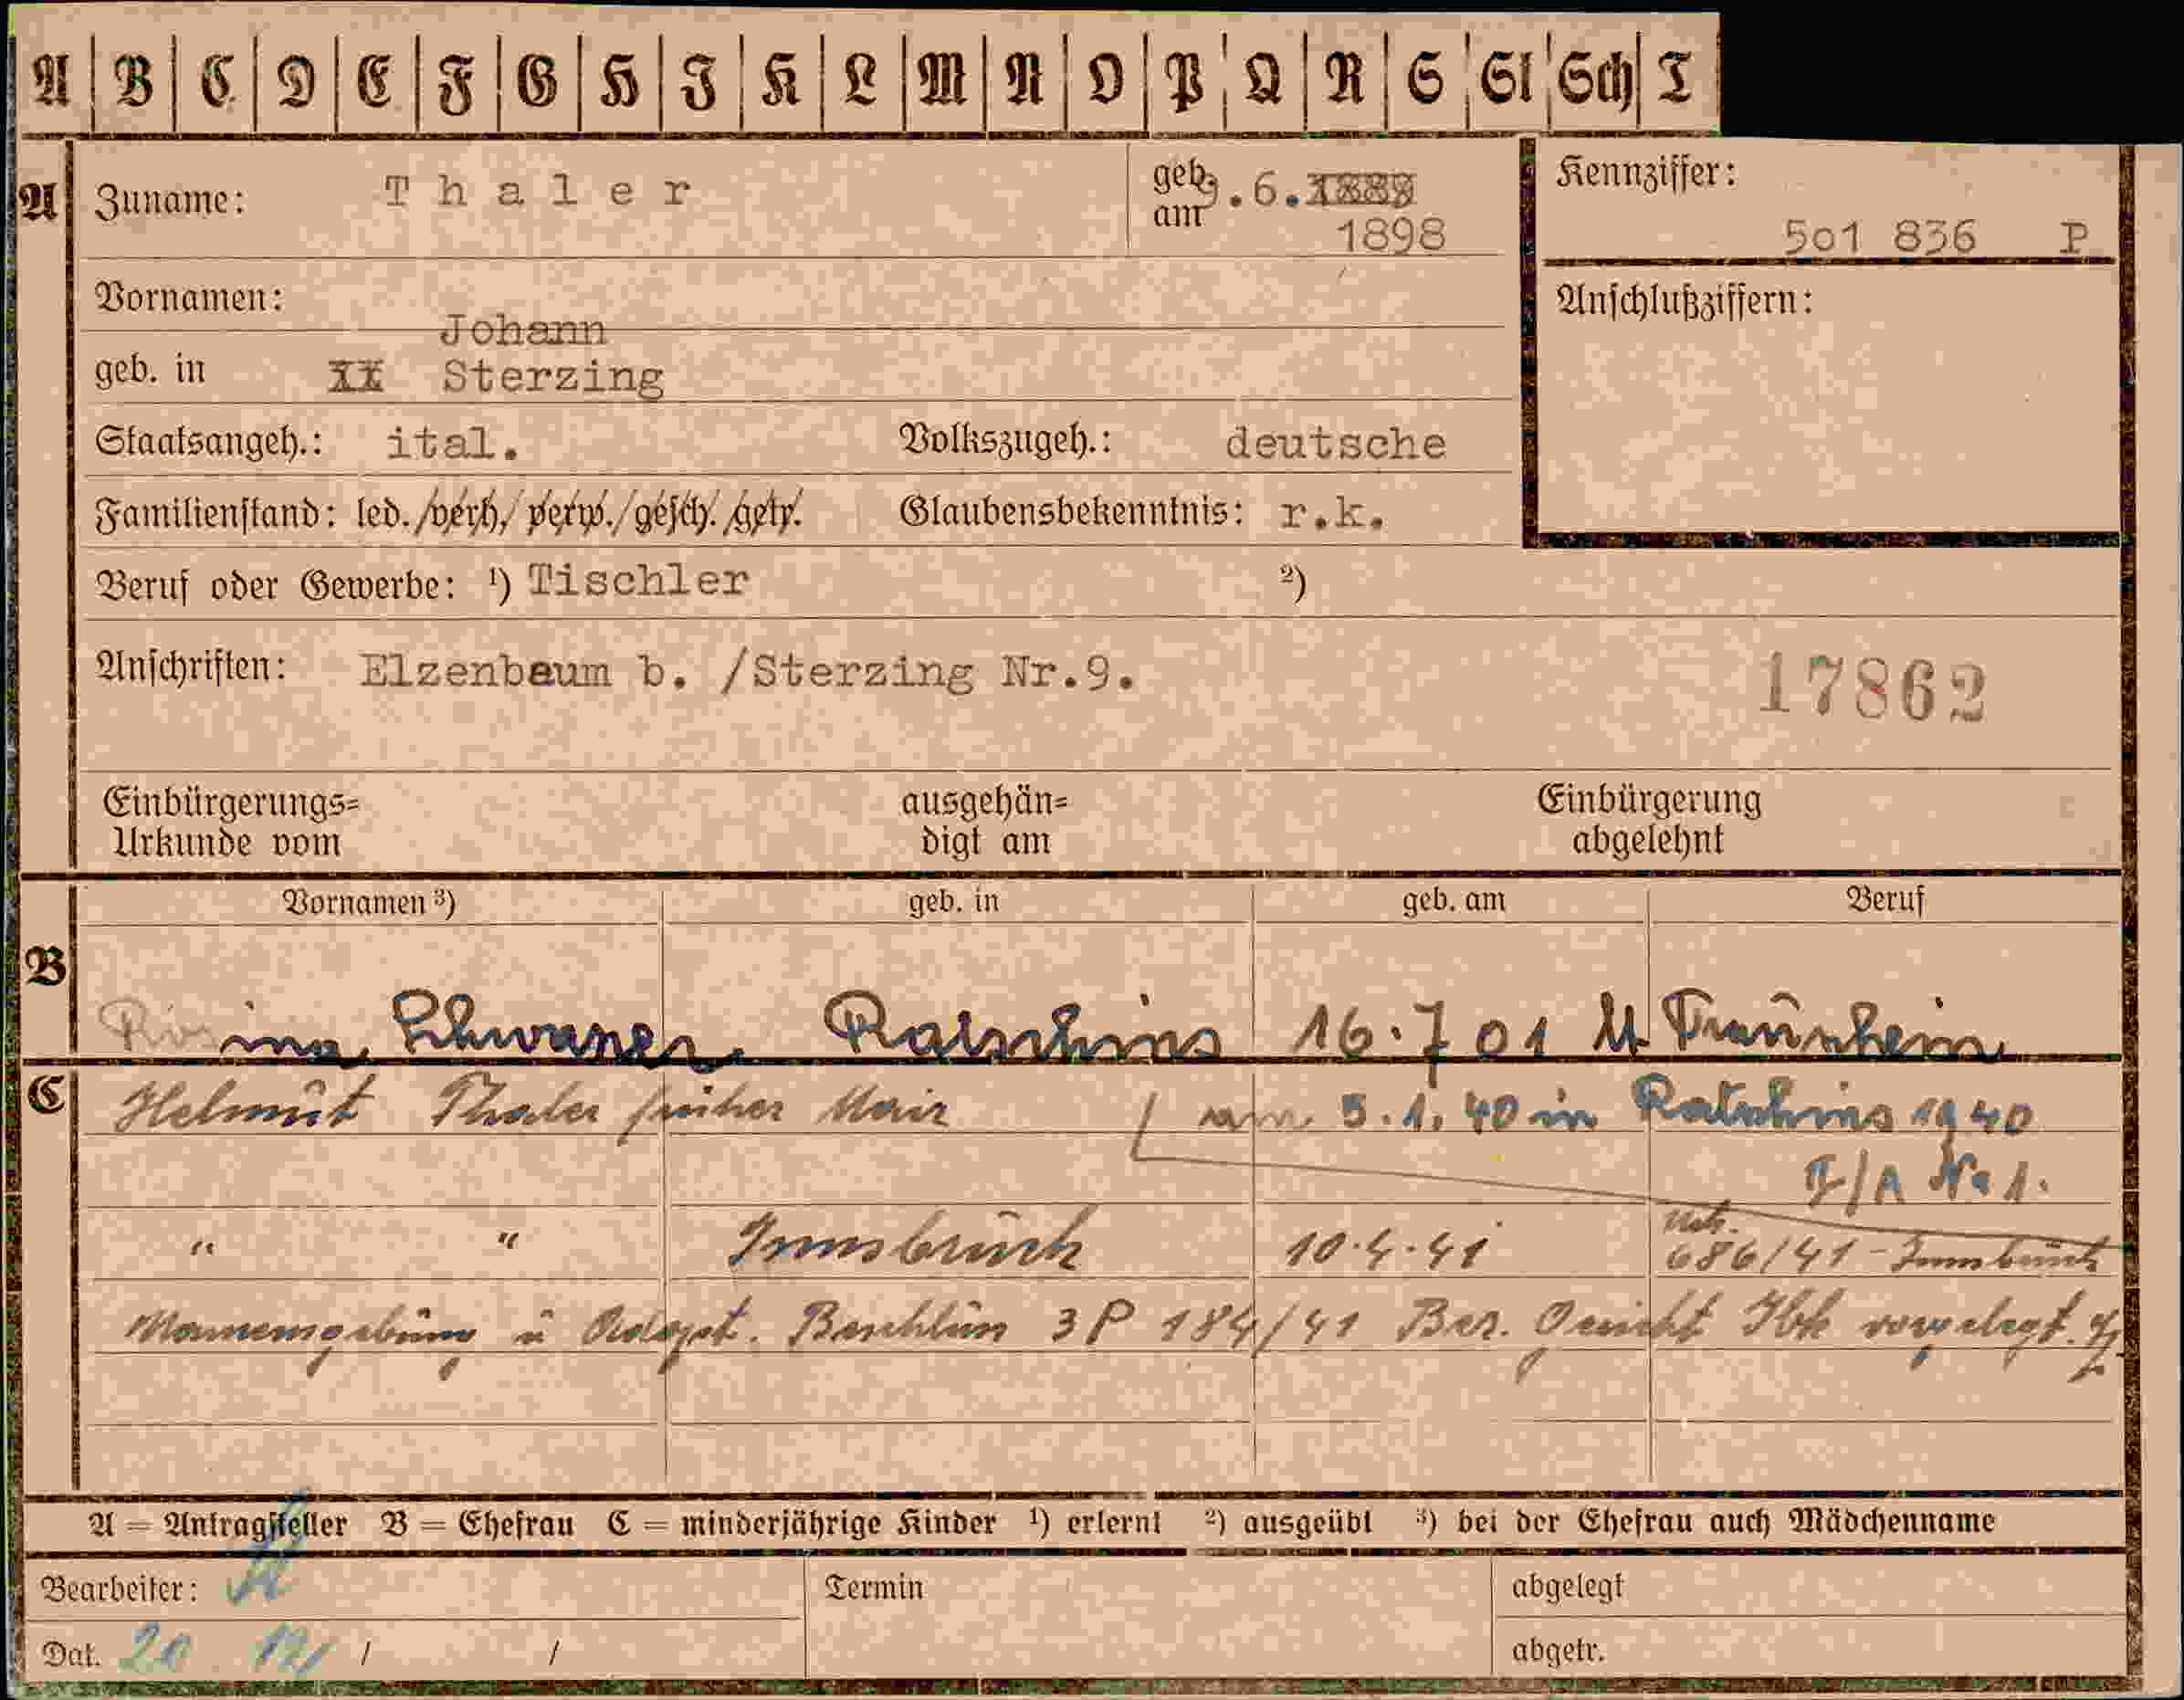 A B C D E F G H J K L M N O P Q R S St Sch T
A Zuname: Thaler geb. am 9.6.1889 1898 Kennziffer: 501 836 P
Vornamen: Johann Anschlußziffern:
geb. in XX Sterzing
Staatsangeh.: ital. Volkszugeh.: deutsche
Familienstand: led./verh./verw./gesch./getr. Glaubensbekenntnis: r.k.
Beruf oder Gewerbe: ¹) Tischler ²)
Anschriften: Elzenbaum b. /Sterzing Nr.9. 17862
Einbürgerungs= ausgehän= Einbürgerung
Urkunde vom digt am abgelehnt
Vornamen ³) geb. in geb. am Beruf
B Rosina Ratschins 16.7 01
C Helmut Thaler früher Mair am 5.1.40 in Ratschins 1940
I/A No 1.
" " Innsbruck 10.4.41 686/41 - Innsbruck
Namensgebung u Adopt. 3 P 184/41 Bez. Gericht Ibk vorgelegt.
A = Antragsteller B = Ehefrau C = minderjährige Kinder ¹) erlernt ²) ausgeübt ³) bei der Ehefrau auch Mädchenname
Bearbeiter: Termin abgelegt
Dat. 20 12/ / / abgetr.